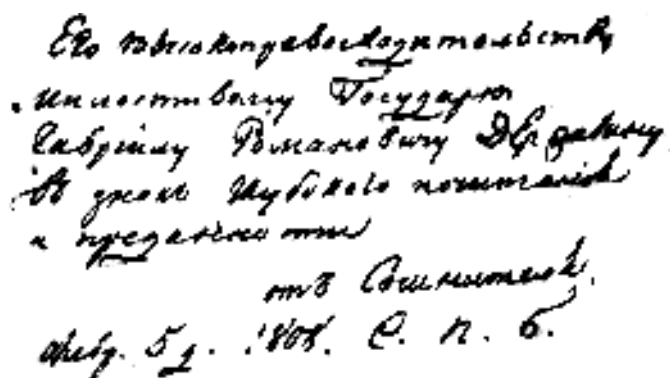 Его высокопревосходительству
милостивому Государю
Гавриилу Романовичу Державину
в знак глубокого почитания
и преданности
отъ Сочинителя.
февр. 5 д. 1808. С. П. б.